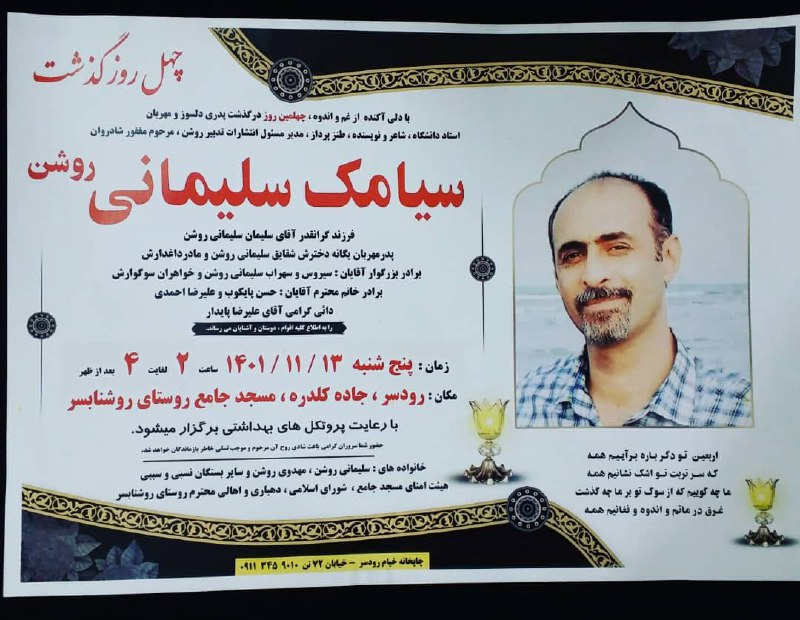 چهل روز گذشت
با دلی آکنده از غم و اندوه ، چهلمین روز درگذشت پدری دلسوز و مهربان
استاد دانشگاه ، شاعر و نویسنده ، طنز پرداز ، مدیر مسئول انتشارات تدبیر روشن ، مرحوم مغفور شادروان
سیامک سلیمانی روشن
فرزند گرانقدر آقای سلیمان سلیمانی روشن
پدرمهربان یگانه دخترش شقایق سلیمانی روشن و مادرداغدارش
برادر بزرگوار آقایان : سیروس و سهراب سلیمانی روشن و خواهران سوگوارش
برادر خانم محترم آقایان : حسن پایکوب و علیرضا احمدی
دائی گرامی آقای علیرضا پایدار
را به اطلاع کلیه اقوام ، دوستان و آشنایان می رساند.
زمان : پنج شنبه ۱۴۰۱/۱۱/۱۳ ساعت ۲ لغایت ۴ بعد از ظهر
مکان : رودسر ، جاده کلدره ، مسجد جامع روستای روشنابسر
با رعایت پروتکل های بهداشتی برگزار میشود.
حضور شما سروران گرامی باعث شادی روح آن مرحوم و موجب تسلی خاطر بازماندگان خواهد شد.
خانواده های : سلیمانی روشن ، مهدوی روشن و سایر بستگان نسبی و سببی
هیئت امنای مسجد جامع ، شورای اسلامی ، دهیاری و اهالی محترم روستای روشنابسر
اربعین تو دگر باره برآییم همه
که سر تربت تو اشک نشانیم همه
ما چه گوییم که از سوک تو بر ما چه گذشت
غرق در ماتم و اندوه و فغانیم همه
چاپخانه خیام رودسر - خیابان ۷۲ تن ۹۰۱۰ ۳۴۵ ۰۹۱۱